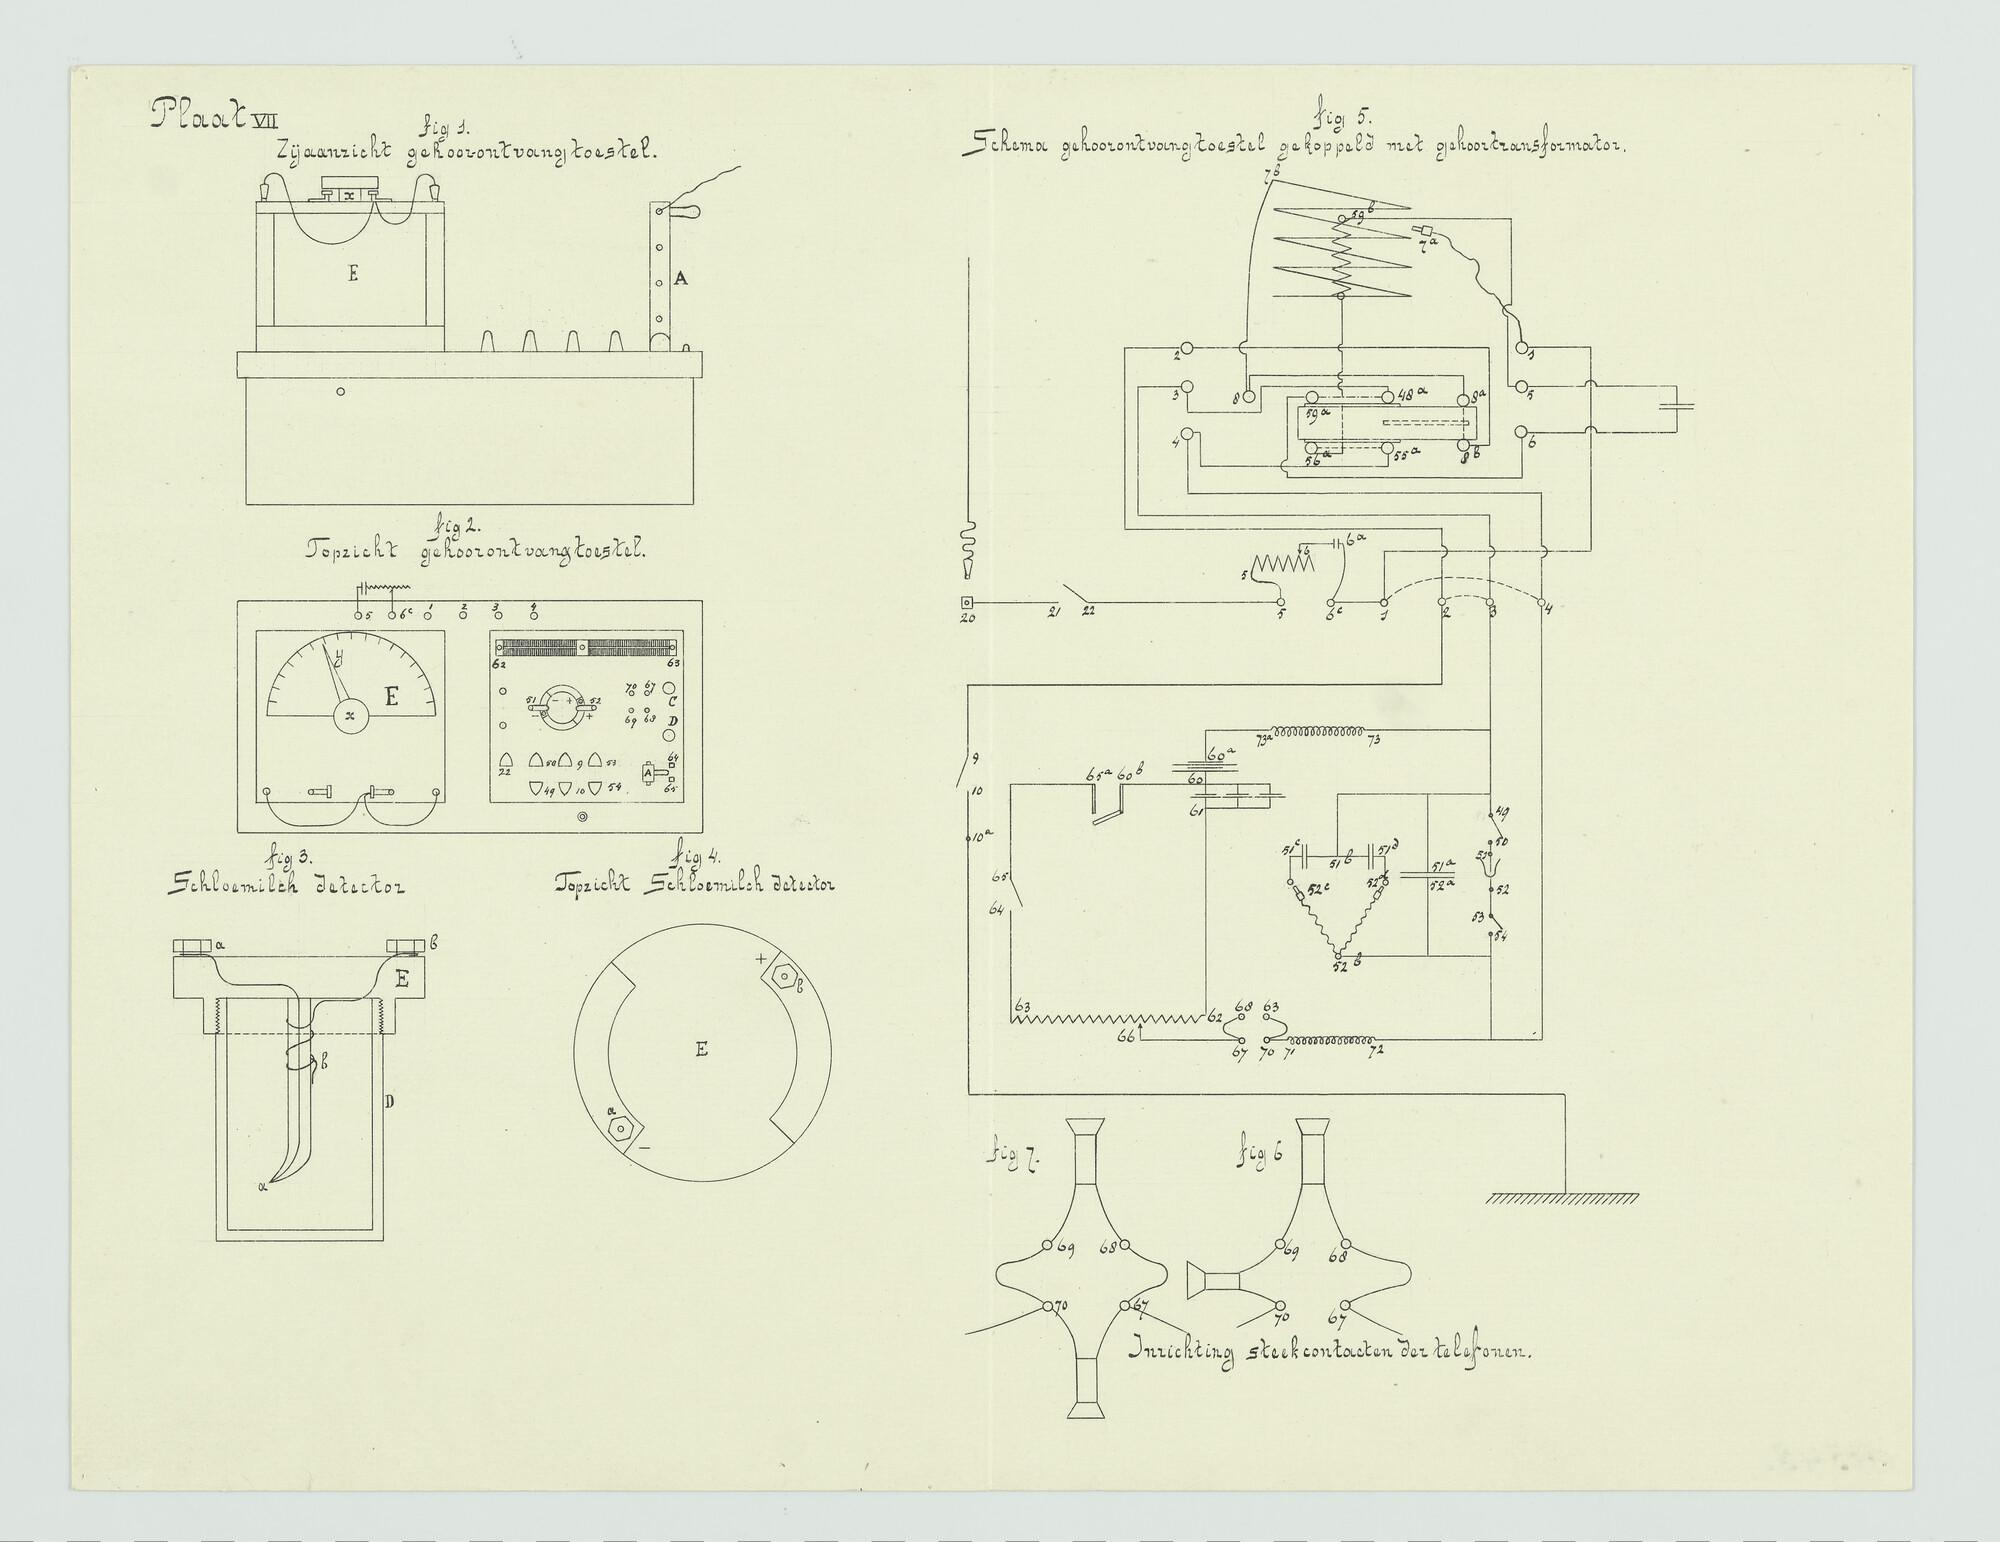 Plaat VII
fig 1.
Zijaanzicht gehoorontvangtoestel.
x
E
A
fig 2.
Topzicht gehoorontvangtoestel.
5 6c 1 2 3 4
y
E
x
62 63
51 - + 52
- +
70 67
69 68
C
D
22 50 9 53
49 10 54
A
64
65
fig 3.
Schloemilch detector
a b
E
b
D
a
fig 4.
Topzicht Schloemilch detector
+
b
E
a
-
fig 5.
Schema gehoorontvangtoestel gekoppeld met gehoortransformator.
7b
59b
7a
2 1
3 8 59a 48a 8a 5
4 56a 55a 8b 6
6 6a
5
20 21 22 5 6c 1 2 3 4
73a 73
9 60a
65a 60b 60
10 61
49
10a 50
51c 51b 51d 51a 51
65 52c 52d 52a 52
64 53
54
52b
63 62 68 63
66 67 70 71 72
fig 7.
69 68
70 67
fig 6
69 68
70 67
Inrichting steekcontacten der telefonen.